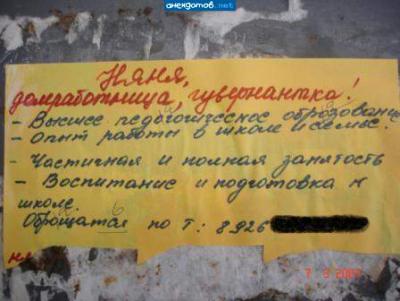 анекдотов.net
Няня,
домработница, гувернантка!
- Высшее педагогическое образование
- Опыт работы в школе и семье.
- Частичная и полная занятость
- Воспитание и подготовка к
школе.
Обращаться по т: 8 926